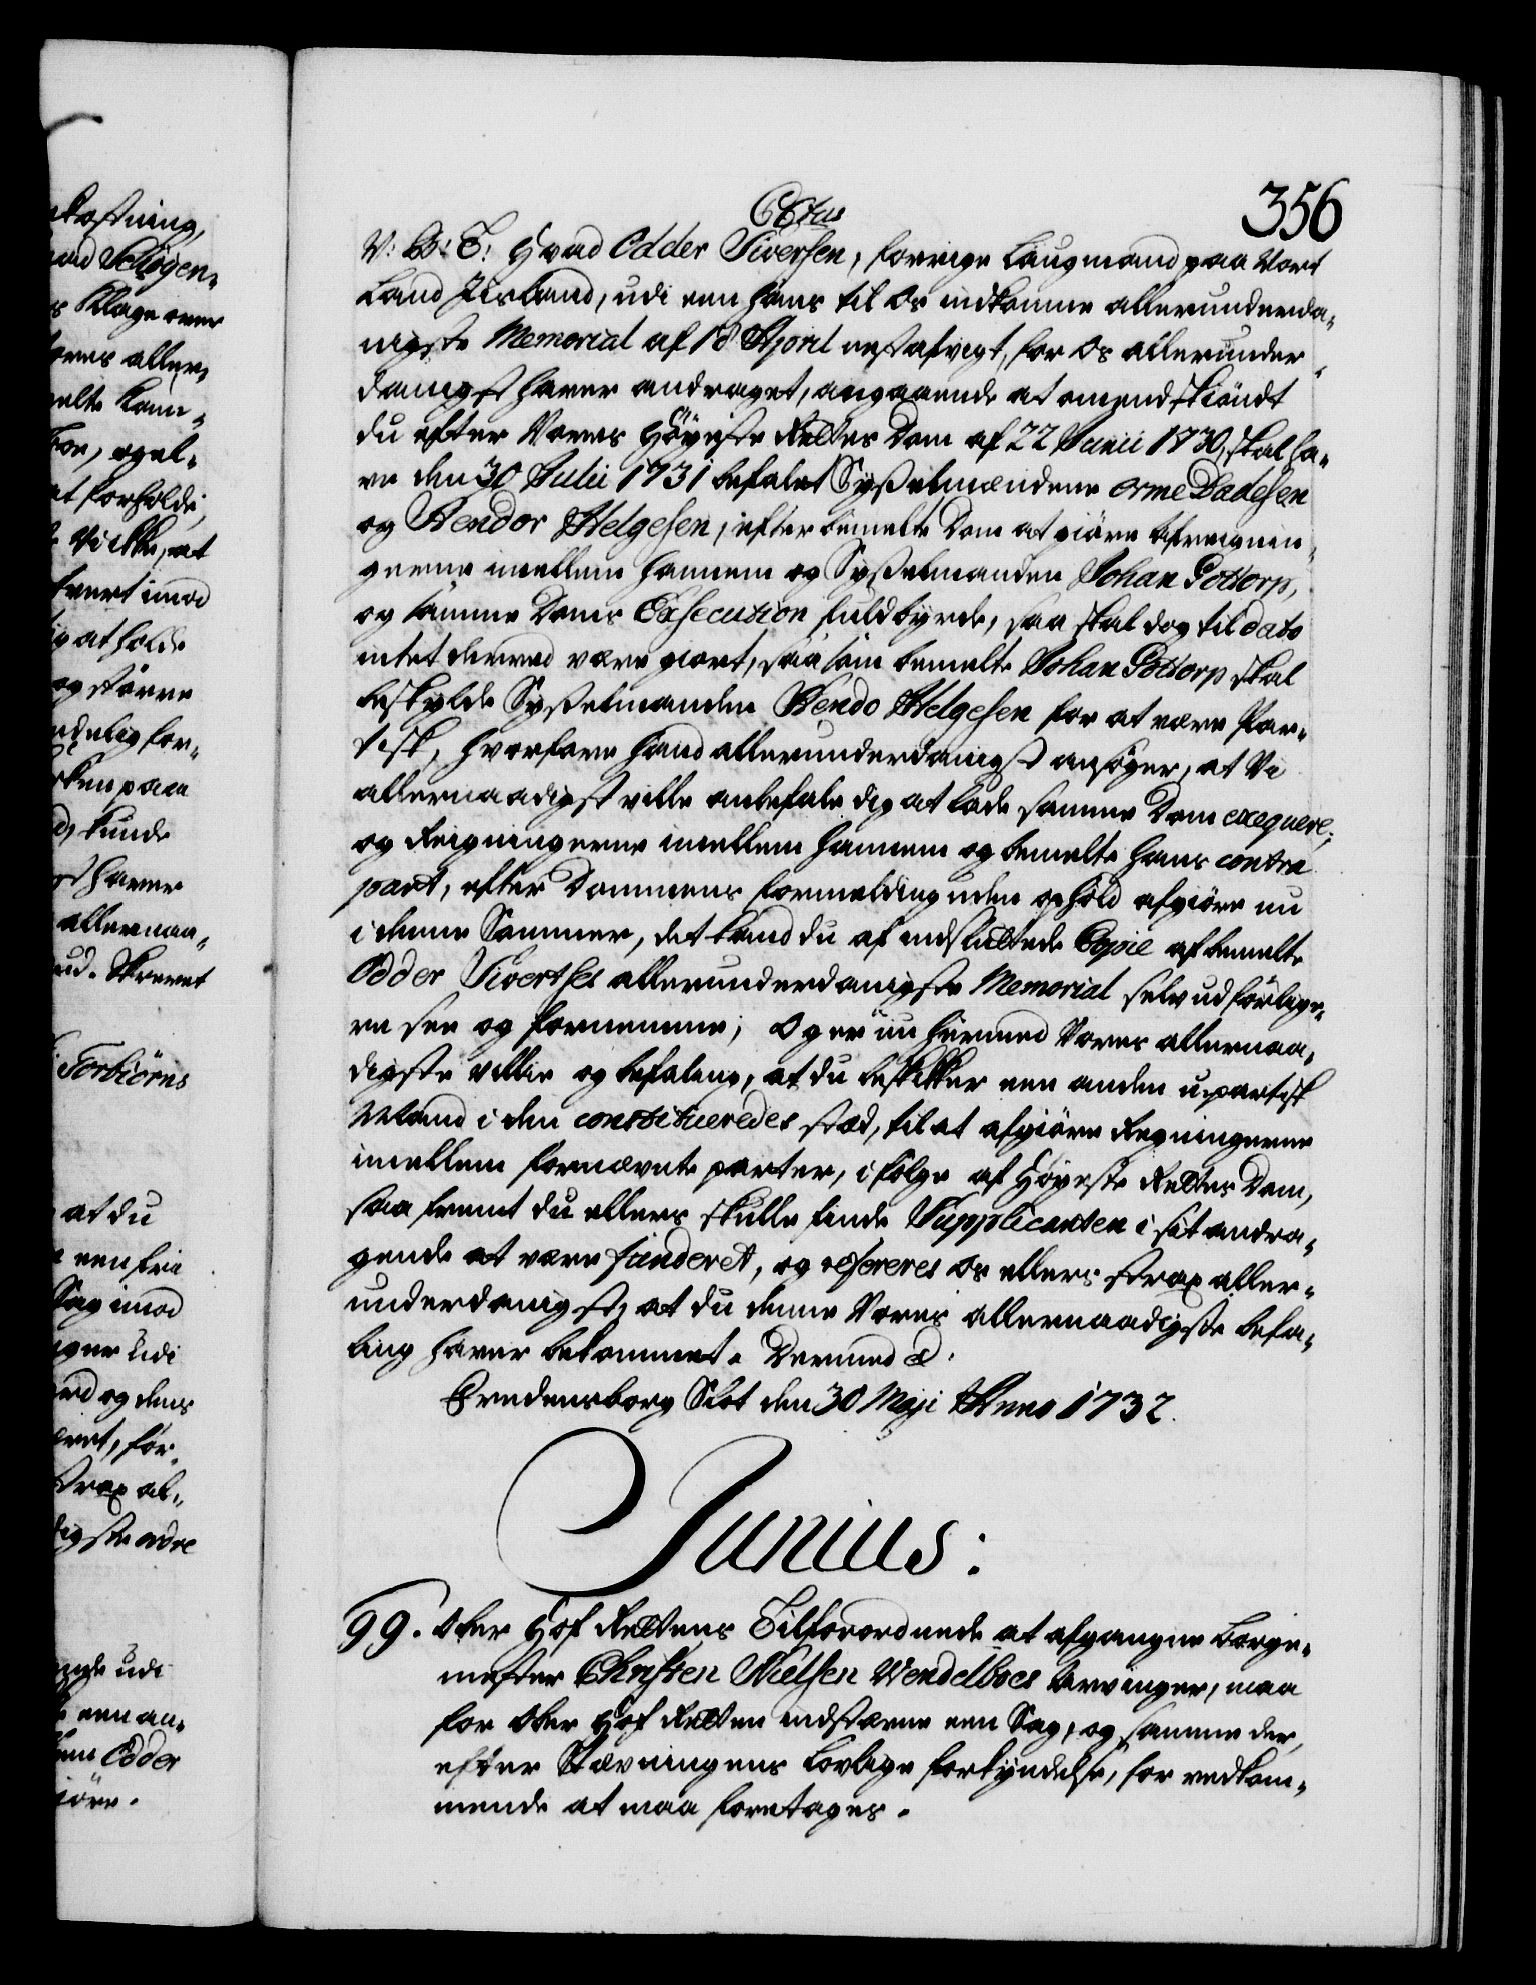 356
C6tus
V: G: T: Hvad Odder Siversen, forrige Laugmand paa Vort
Land Iisland, udi een hans til Os indkomne allerunderda-
nigste Memorial af 18 April nestafvigt, for Os allerunder-
danigst haver andraget, angaaende at omendskiöndt
du efter Vores Höyeste Rettes Dom af 22 Junii 1730, skal ha-
ve den 30 Julii 1731 befalet Sysselmændene Orme Dadesen
og Hendor Helgesen, efter bemelte Dom at giöre afreignin-
gerne imellem hannem og Sysselmanden Johan Gottorp,
og samme Doms Exsecution fuldbyrde, saa skal dog til dato
intet derved være giort, saasom bemelte Johan Gottorp skal
beskylde Sysselmanden Hendo Helgesen for at være Par-
tisk, hvorfore hand allerunderdanigst ansöger, at Vi
allernaadigst ville anbefale dig at lade samme Dom exequere,
og Reigningerne imellem hannem og bemelte hans contra
part, efter Dommens formelding uden ophold afgiöre nu
i denne Sommer, det kand du af indsluttede Copie af bemelte
Odder Siverthes allerunderdanigste Memorial selv udförlige-
re see og fornemme; Og er nu hermed Vores allernaa-
digste Villie og befaling, at du beskikker een anden upartisk
Mand i den constitueredes stæd, til at afgiöre Regningerne
imellem fornævnte parter, i fölge af Höyeste Rettes Dom,
saa fremt du ellers skulle finde Supplicanten i sit andra-
gende at være funderet, og refereres Os ellers strax aller-
underdanigst, at du denne Vores allernaadigste befa-
ling haver bekommet. Dermed &.
Fredensborg Slot den 30 Maji Anno 1732.
Junius:
99. Ober Hof Rettens Tilforordnede at afgangne Borge-
mester Christen Nielsen Wendelboes Arvinger, maa
for Ober Hof Retten indstævne een Sag, og samme der,
efter Stævningens lovlige forkyndelse, for vedkom-
mende at maa foretages.